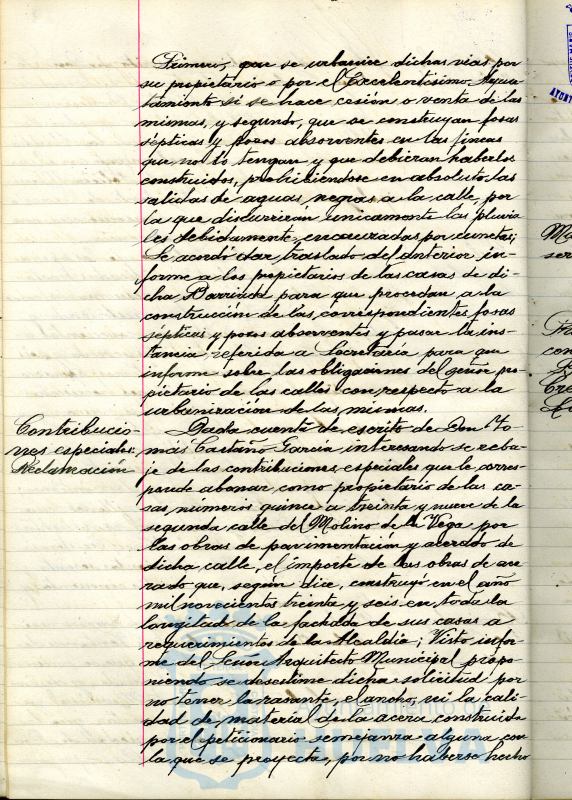 Primero, que se urbanice dichas vias por
su propietario o por el Excelentísimo Ayun-
tamiento si se hace cesión o venta de las
mismas, y segundo, que se construyan fosas
sépticas y pozos absorventes en las fincas
que no lo tengan y que debieran haberlos
construidos, prohibiendose en absoluto las
salidas de aguas negras a la calle, por
la que discurrirán unicamente las pluvia
les debidamente encauzadas por cunetas;
Se acordó dar traslado del anterior in-
forme a los propietarios de las casas de di-
cha Barriada para que procedan a la
construcción de las correspondientes fosas
sépticas y pozos absorventes y pasar la ins-
tancia referida a Secretaría para que
informe sobre las obligaciones del señor pro-
pietario de las calles con respecto a la
urbanizacion de las mismas.
Contribucio-
nes especiales.
Reclamación
Dada cuenta de escrito de Don To-
más Castaño García interesando se reba-
je de las contribuciones especiales que le corres-
ponde abonar como propietario de las ca-
sas números quince a treinta y nueve de la
segunda calle del Molino de la Vega por
las obras de pavimentación y acerado de
dicha calle, el importe de las obras de ace-
rado que, según dice, construyó en el año
mil novecientos treinta y seis en toda la
longitud de la fachada de sus casas a
requerimientos de la Alcaldía; Visto infor-
me del Señor Arquitecto Municipal propo-
niendo se desestime dicha solicitud por
no tener la rasante, el ancho, ni la cali-
dad de material de la acera construida
por el peticionario semejanza alguna con
la que se proyecta, por no haberse hecho
Ayuntamiento de
HUELVA